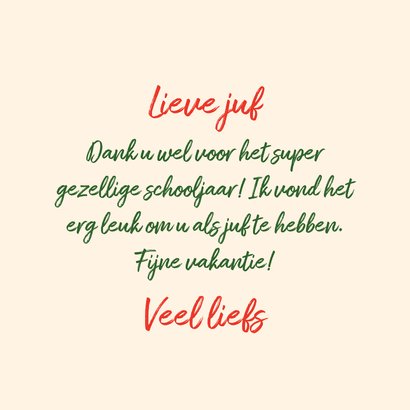 Lieve juf
Dank u wel voor het super
gezellige schooljaar! Ik vond het
erg leuk om u als juf te hebben.
Fijne vakantie!
Veel liefs